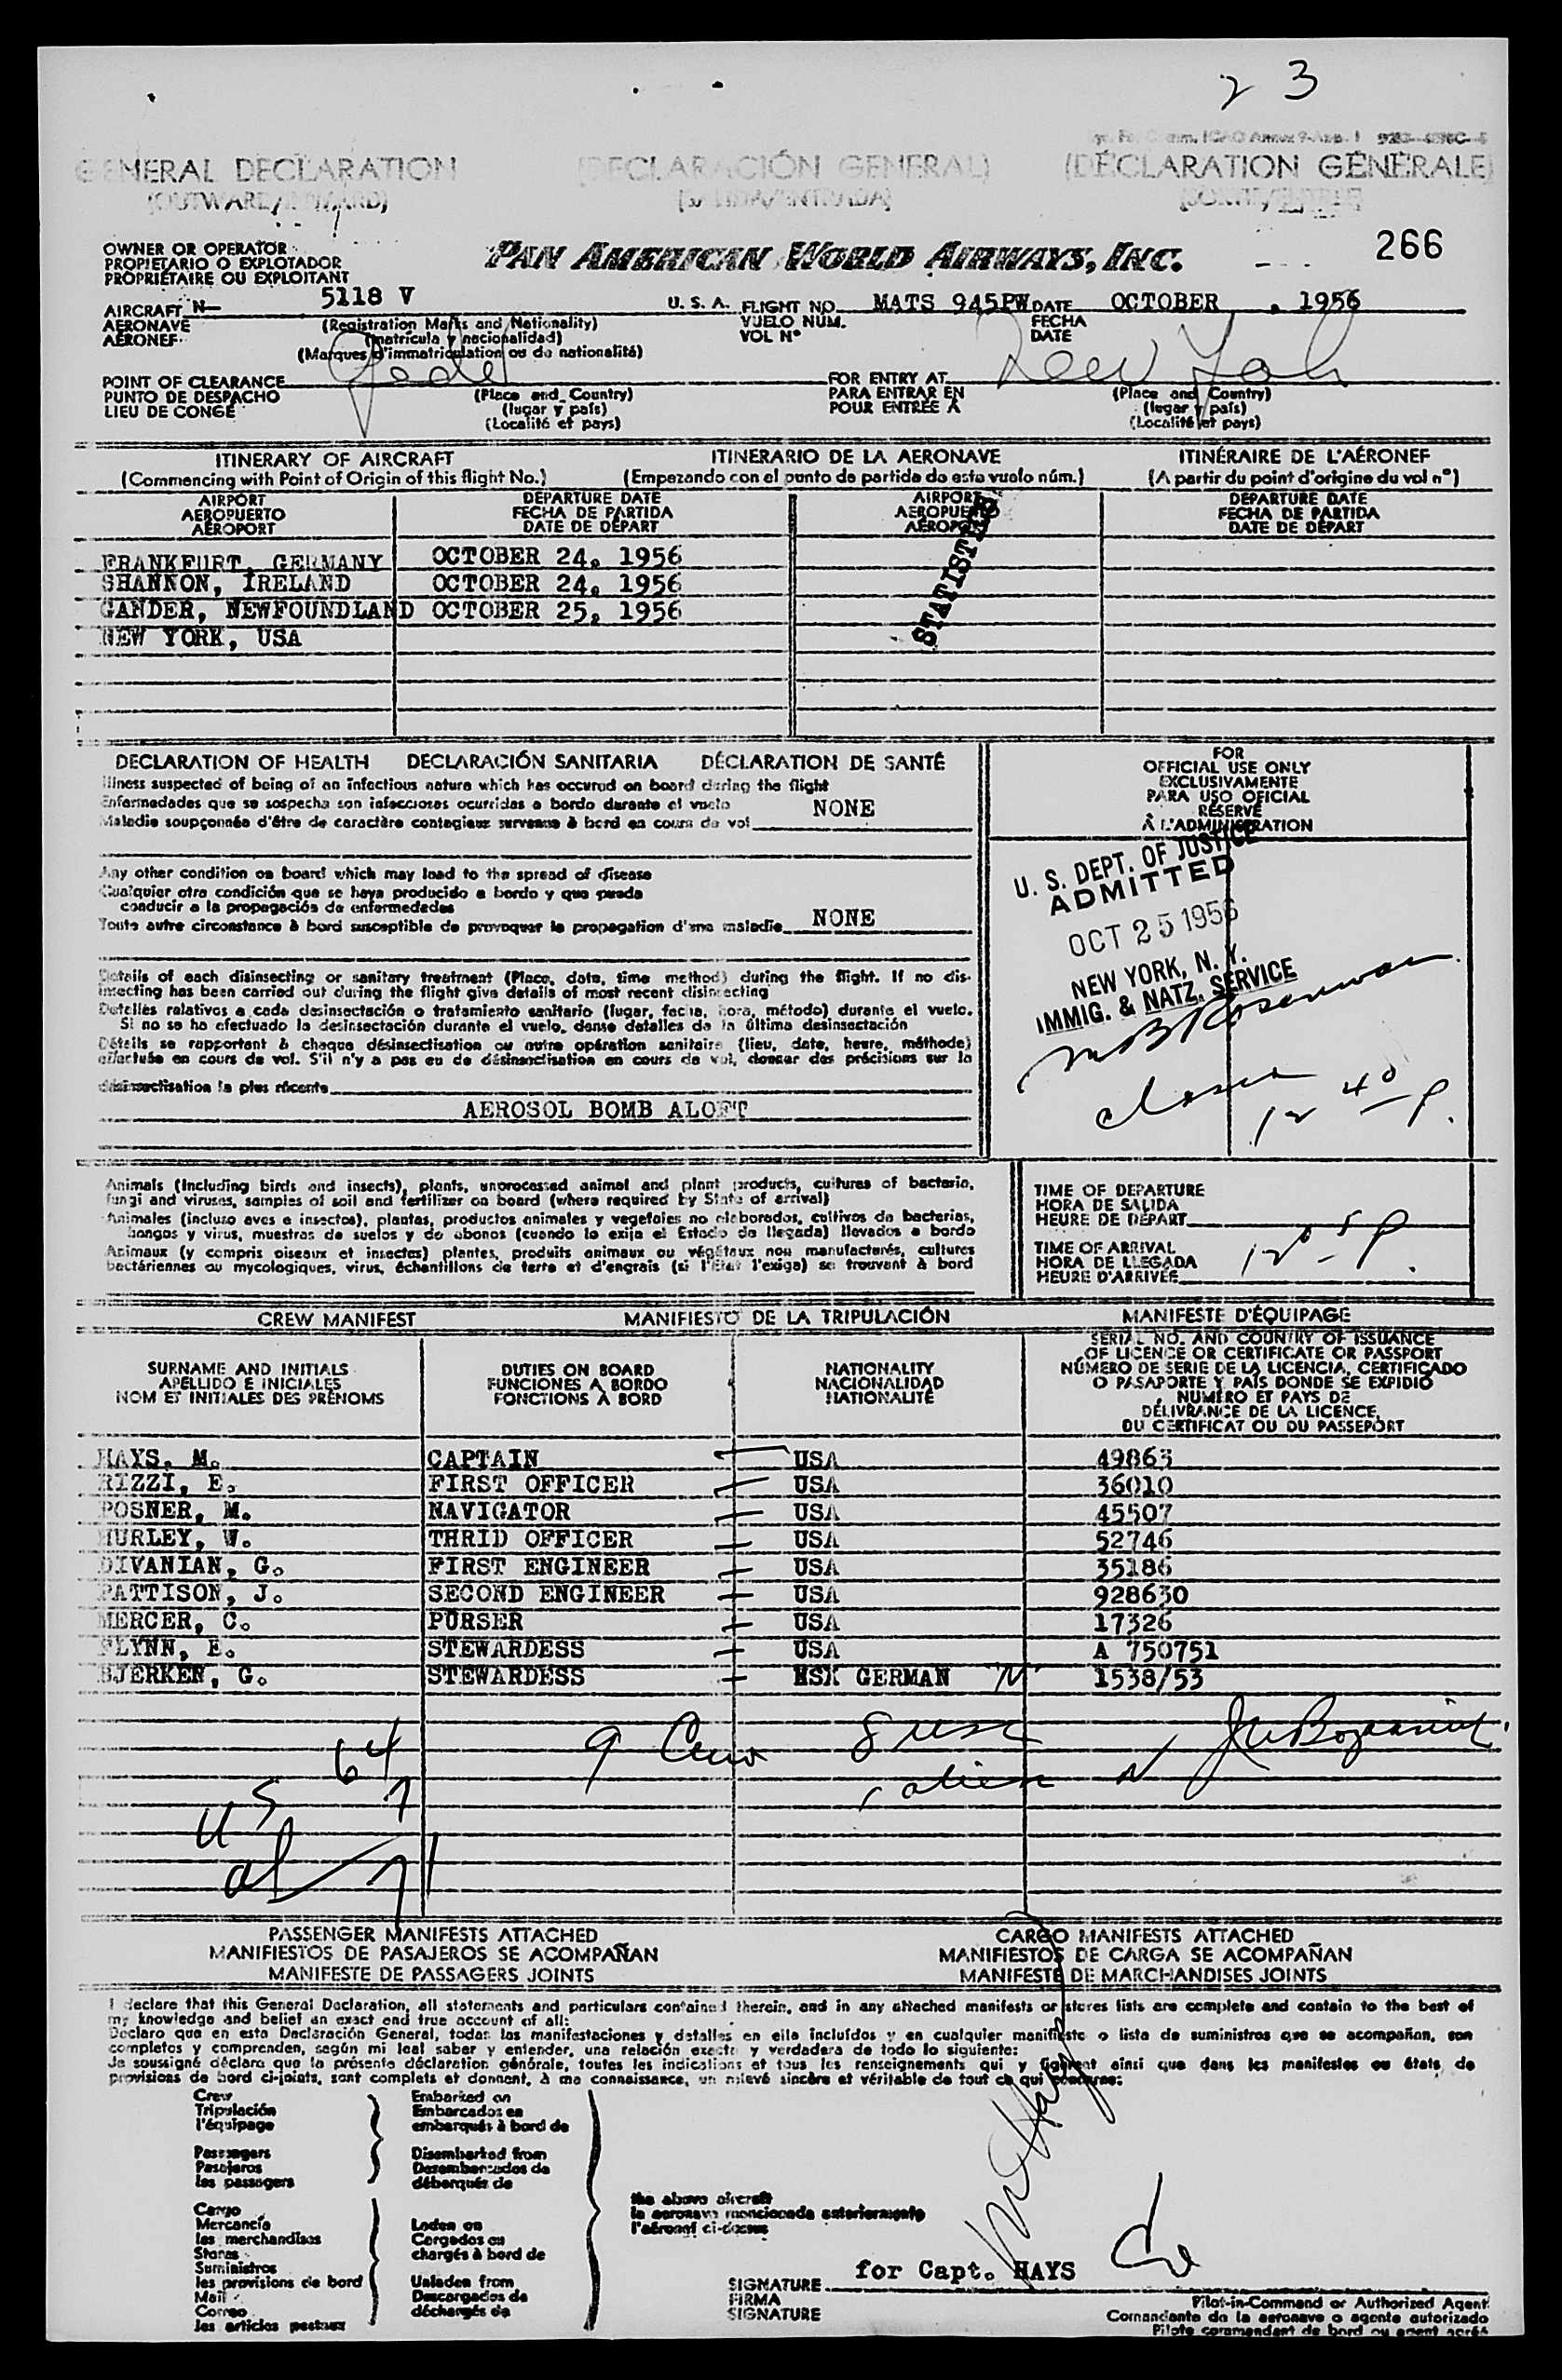 2 3
GENERAL DECLARATION (DECLARACIÓN GENERAL) (DÉCLARATION GÉNÉRALE)
(OUTWARD/INWARD) (SALIDA/ENTRADA)
OWNER OR OPERATOR
PROPIETARIO O EXPLOTADOR
PROPRIÉTAIRE OU EXPLOITANT
PAN AMERICAN WORLD AIRWAYS, INC.
266
AIRCRAFT N— 5118 V U. S. A. FLIGHT NO. MATS 945PW DATE OCTOBER , 1956
AERONAVE (Registration Marks and Nationality) VUELO NUM. FECHA
AÉRONEF (matrícula y nacionalidad) VOL Nº DATE
(Marques d'immatriculation ou de nationalité)
POINT OF CLEARANCE FOR ENTRY AT New York
PUNTO DE DESPACHO (Place and Country) PARA ENTRAR EN (Place and Country)
LIEU DE CONGÉ (lugar y país) POUR ENTRÉE À (lugar y país)
(Localité et pays) (Localité et pays)
ITINERARY OF AIRCRAFT ITINERARIO DE LA AERONAVE ITINÉRAIRE DE L'AÉRONEF
(Commencing with Point of Origin of this flight No.) (Empezando con el punto de partida de este vuelo núm.) (A partir du point d'origine du vol nº)
AIRPORT DEPARTURE DATE AIRPORT DEPARTURE DATE
AEROPUERTO FECHA DE PARTIDA AEROPUERTO FECHA DE PARTIDA
AÉROPORT DATE DE DÉPART AÉROPORT DATE DE DÉPART
FRANKFURT, GERMANY OCTOBER 24, 1956
SHANNON, IRELAND OCTOBER 24, 1956
GANDER, NEWFOUNDLAND OCTOBER 25, 1956
NEW YORK, USA
DECLARATION OF HEALTH DECLARACIÓN SANITARIA DÉCLARATION DE SANTÉ
Illness suspected of being of an infectious nature which has occurred on board during the flight
Enfermedades que se sospecha son infecciosas ocurridas a bordo durante el vuelo
Maladie soupçonnée d'être de caractère contagieux survenue à bord en cours de vol NONE
Any other condition on board which may lead to the spread of disease
Cualquier otra condición que se haya producido a bordo y que pueda
conducir a la propagación de enfermedades
Toute autre circonstance à bord susceptible de provoquer la propagation d'une maladie NONE
Details of each disinsecting or sanitary treatment (Place, date, time method) during the flight. If no dis-
insecting has been carried out during the flight give details of most recent disinsecting
Detalles relativos a cada desinsectación o tratamiento sanitario (lugar, fecha, hora, método) durante el vuelo.
Si no se ha efectuado la desinsectación durante el vuelo, dense detalles de la última desinsectación
Détails se rapportant à chaque désinsectisation ou autre opération sanitaire (lieu, date, heure, méthode)
effectuée en cours de vol. S'il n'y a pas eu de désinsectisation en cours de vol, donner des précisions sur la
désinsectisation la plus récente
AEROSOL BOMB ALOFT
FOR
OFFICIAL USE ONLY
EXCLUSIVAMENTE
PARA USO OFICIAL
RÉSERVÉ
À L'ADMINISTRATION
U. S. DEPT. OF JUSTICE
ADMITTED
OCT 25 1956
NEW YORK, N. Y.
IMMIG. & NATZ. SERVICE
12 40 P.
Animals (Including birds and insects), plants, unprocessed animal and plant products, cultures of bacteria,
fungi and viruses, samples of soil and fertilizer on board (where required by State of arrival)
Animales (incluso aves e insectos), plantas, productos animales y vegetales no elaborados, cultivos de bacterias,
hongos y virus, muestras de suelos y de abonos (cuando lo exija el Estado de llegada) llevados a bordo
Animaux (y compris oiseaux et insectes) plantes, produits animaux ou végétaux non manufacturés, cultures
bactériennes ou mycologiques, virus, échantillons de terre et d'engrais (si l'État l'exige) se trouvant à bord
TIME OF DEPARTURE
HORA DE SALIDA
HEURE DE DÉPART
TIME OF ARRIVAL
HORA DE LLEGADA 12 05 P.
HEURE D'ARRIVÉE
CREW MANIFEST MANIFIESTO DE LA TRIPULACIÓN MANIFESTE D'ÉQUIPAGE
SURNAME AND INITIALS DUTIES ON BOARD NATIONALITY
APELLIDO E INICIALES FUNCIONES A BORDO NACIONALIDAD
NOM ET INITIALES DES PRÉNOMS FONCTIONS À BORD NATIONALITÉ
SERIAL NO. AND COUNTRY OF ISSUANCE
OF LICENCE OR CERTIFICATE OR PASSPORT
NÚMERO DE SERIE DE LA LICENCIA, CERTIFICADO
O PASAPORTE Y PAÍS DONDE SE EXPIDIÓ
NUMÉRO ET PAYS DE
DÉLIVRANCE DE LA LICENCE,
DU CERTIFICAT OU DU PASSEPORT
HAYS, M. CAPTAIN USA 49863
RIZZI, E. FIRST OFFICER USA 36010
POSNER, M. NAVIGATOR USA 45507
HURLEY, W. THRID OFFICER USA 52746
DIVANIAN, G. FIRST ENGINEER USA 35186
PATTISON, J. SECOND ENGINEER USA 928630
MERCER, C. PURSER USA 17326
FLYNN, E. STEWARDESS USA A 750751
BJERKEN, G. STEWARDESS GERMAN 1538/53
64 9 Crew 8 usc
1 alien
US
PASSENGER MANIFESTS ATTACHED CARGO MANIFESTS ATTACHED
MANIFIESTOS DE PASAJEROS SE ACOMPAÑAN MANIFIESTOS DE CARGA SE ACOMPAÑAN
MANIFESTE DE PASSAGERS JOINTS MANIFESTE DE MARCHANDISES JOINTS
I declare that this General Declaration, all statements and particulars contained therein, and in any attached manifests or stores lists are complete and contain to the best of
my knowledge and belief an exact and true account of all:
Declaro que en esta Declaración General, todas las manifestaciones y detalles en ella incluídos y en cualquier manifiesto o lista de suministros que se acompañan, son
completos y comprenden, según mi leal saber y entender, una relación exacta y verdadera de todo lo siguiente:
Je soussigné déclare que la présente déclaration générale, toutes les indications et tous les renseignements qui y figurent ainsi que dans les manifestes ou états de
provisions de bord ci-joints, sont complets et donnent, à ma connaissance, un relevé sincère et véritable de tout ce qui concerne:
Crew Embarked on
Tripulación Embarcados en
l'équipage embarqués à bord de
Passengers Disembarked from
Pasajeros Desembarcados de
les passagers débarqués de
Cargo
Mercancía Laden on
les merchandises Cargados en
Stores chargés à bord de
Suministros
les provisions de bord Unladen from
Mail Descargados de
Correo déchargés de
les articles postaux
the above aircraft
la aeronave mencionada anteriormente
l'aéronef ci-dessus
for Capt. HAYS
SIGNATURE
FIRMA
SIGNATURE
Pilot-in-Command or Authorized Agent
Comandante de la aeronave o agente autorizado
Pilote commandant de bord ou agent agréé
STATISTICS